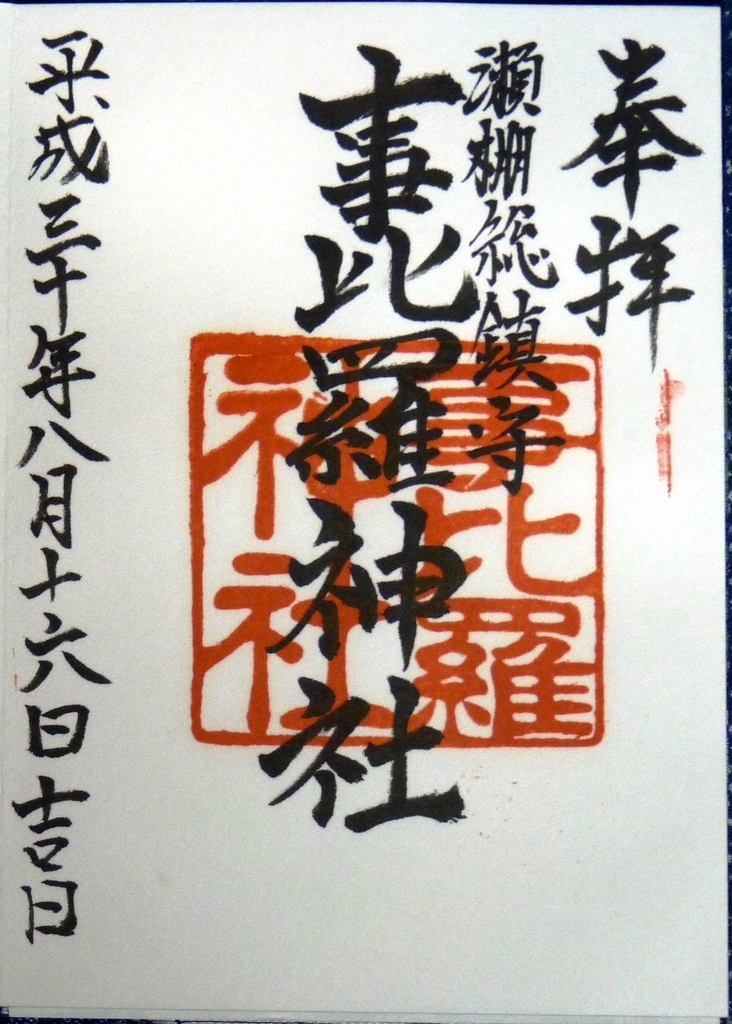 奉拝
瀬棚総鎮守
事比羅神社
事比羅
神社
平成三十年八月十六日吉日